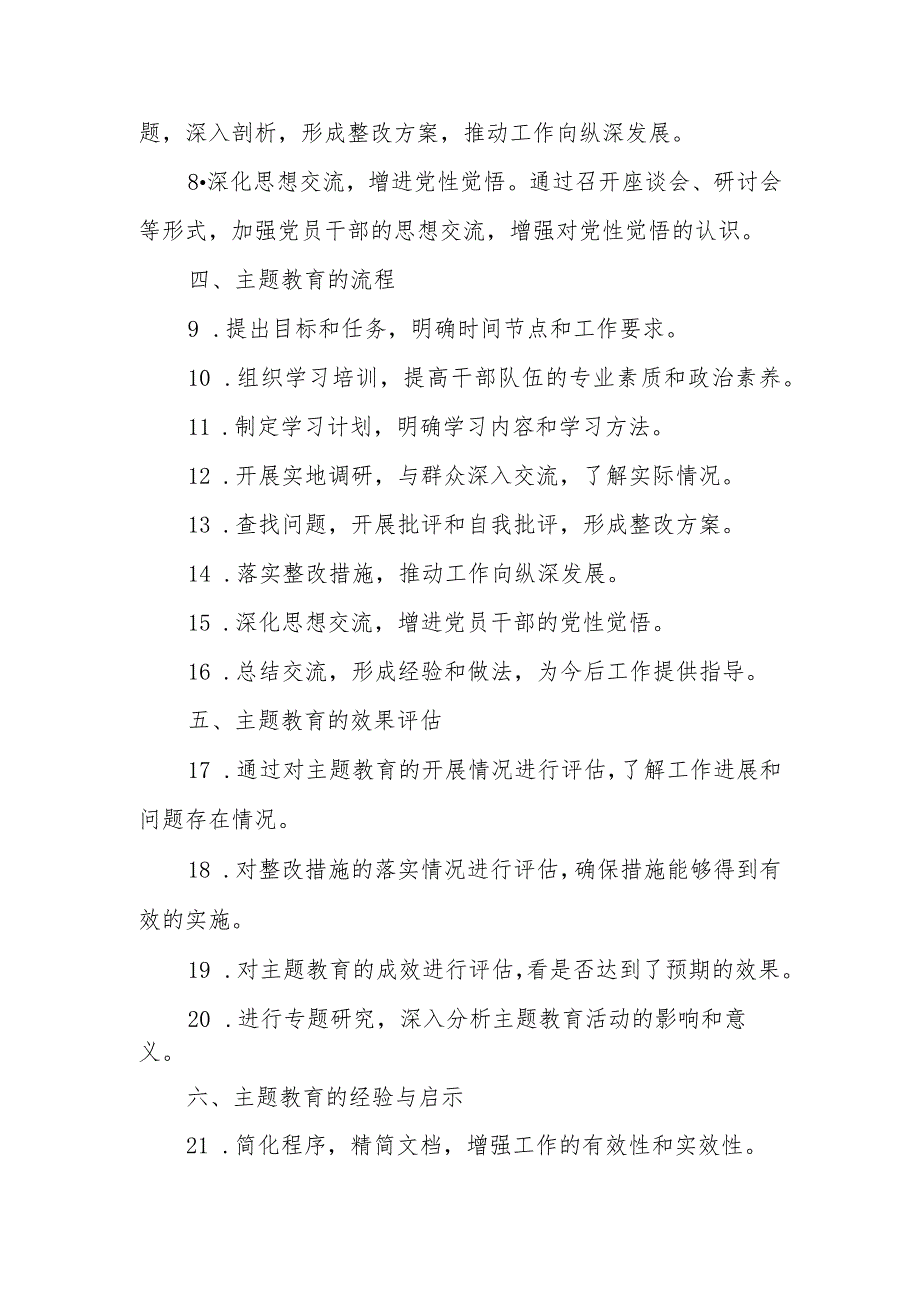 题，深入剖析，形成整改方案，推动工作向纵深发展。
8•深化思想交流，增进党性觉悟。通过召开座谈会、研讨会
等形式，加强党员干部的思想交流，增强对党性觉悟的认识。
四、主题教育的流程
9 .提出目标和任务，明确时间节点和工作要求。
10 .组织学习培训，提高干部队伍的专业素质和政治素养。
11 .制定学习计划，明确学习内容和学习方法。
12 .开展实地调研，与群众深入交流，了解实际情况。
13 .查找问题，开展批评和自我批评，形成整改方案。
14 .落实整改措施，推动工作向纵深发展。
15 .深化思想交流，增进党员干部的党性觉悟。
16 .总结交流，形成经验和做法，为今后工作提供指导。
五、主题教育的效果评估
17 .通过对主题教育的开展情况进行评估，了解工作进展和
问题存在情况。
18 .对整改措施的落实情况进行评估，确保措施能够得到有
效的实施。
19 .对主题教育的成效进行评估，看是否达到了预期的效果。
20 .进行专题研究，深入分析主题教育活动的影响和意
义。
六、主题教育的经验与启示
21 .简化程序，精简文档，增强工作的有效性和实效性。